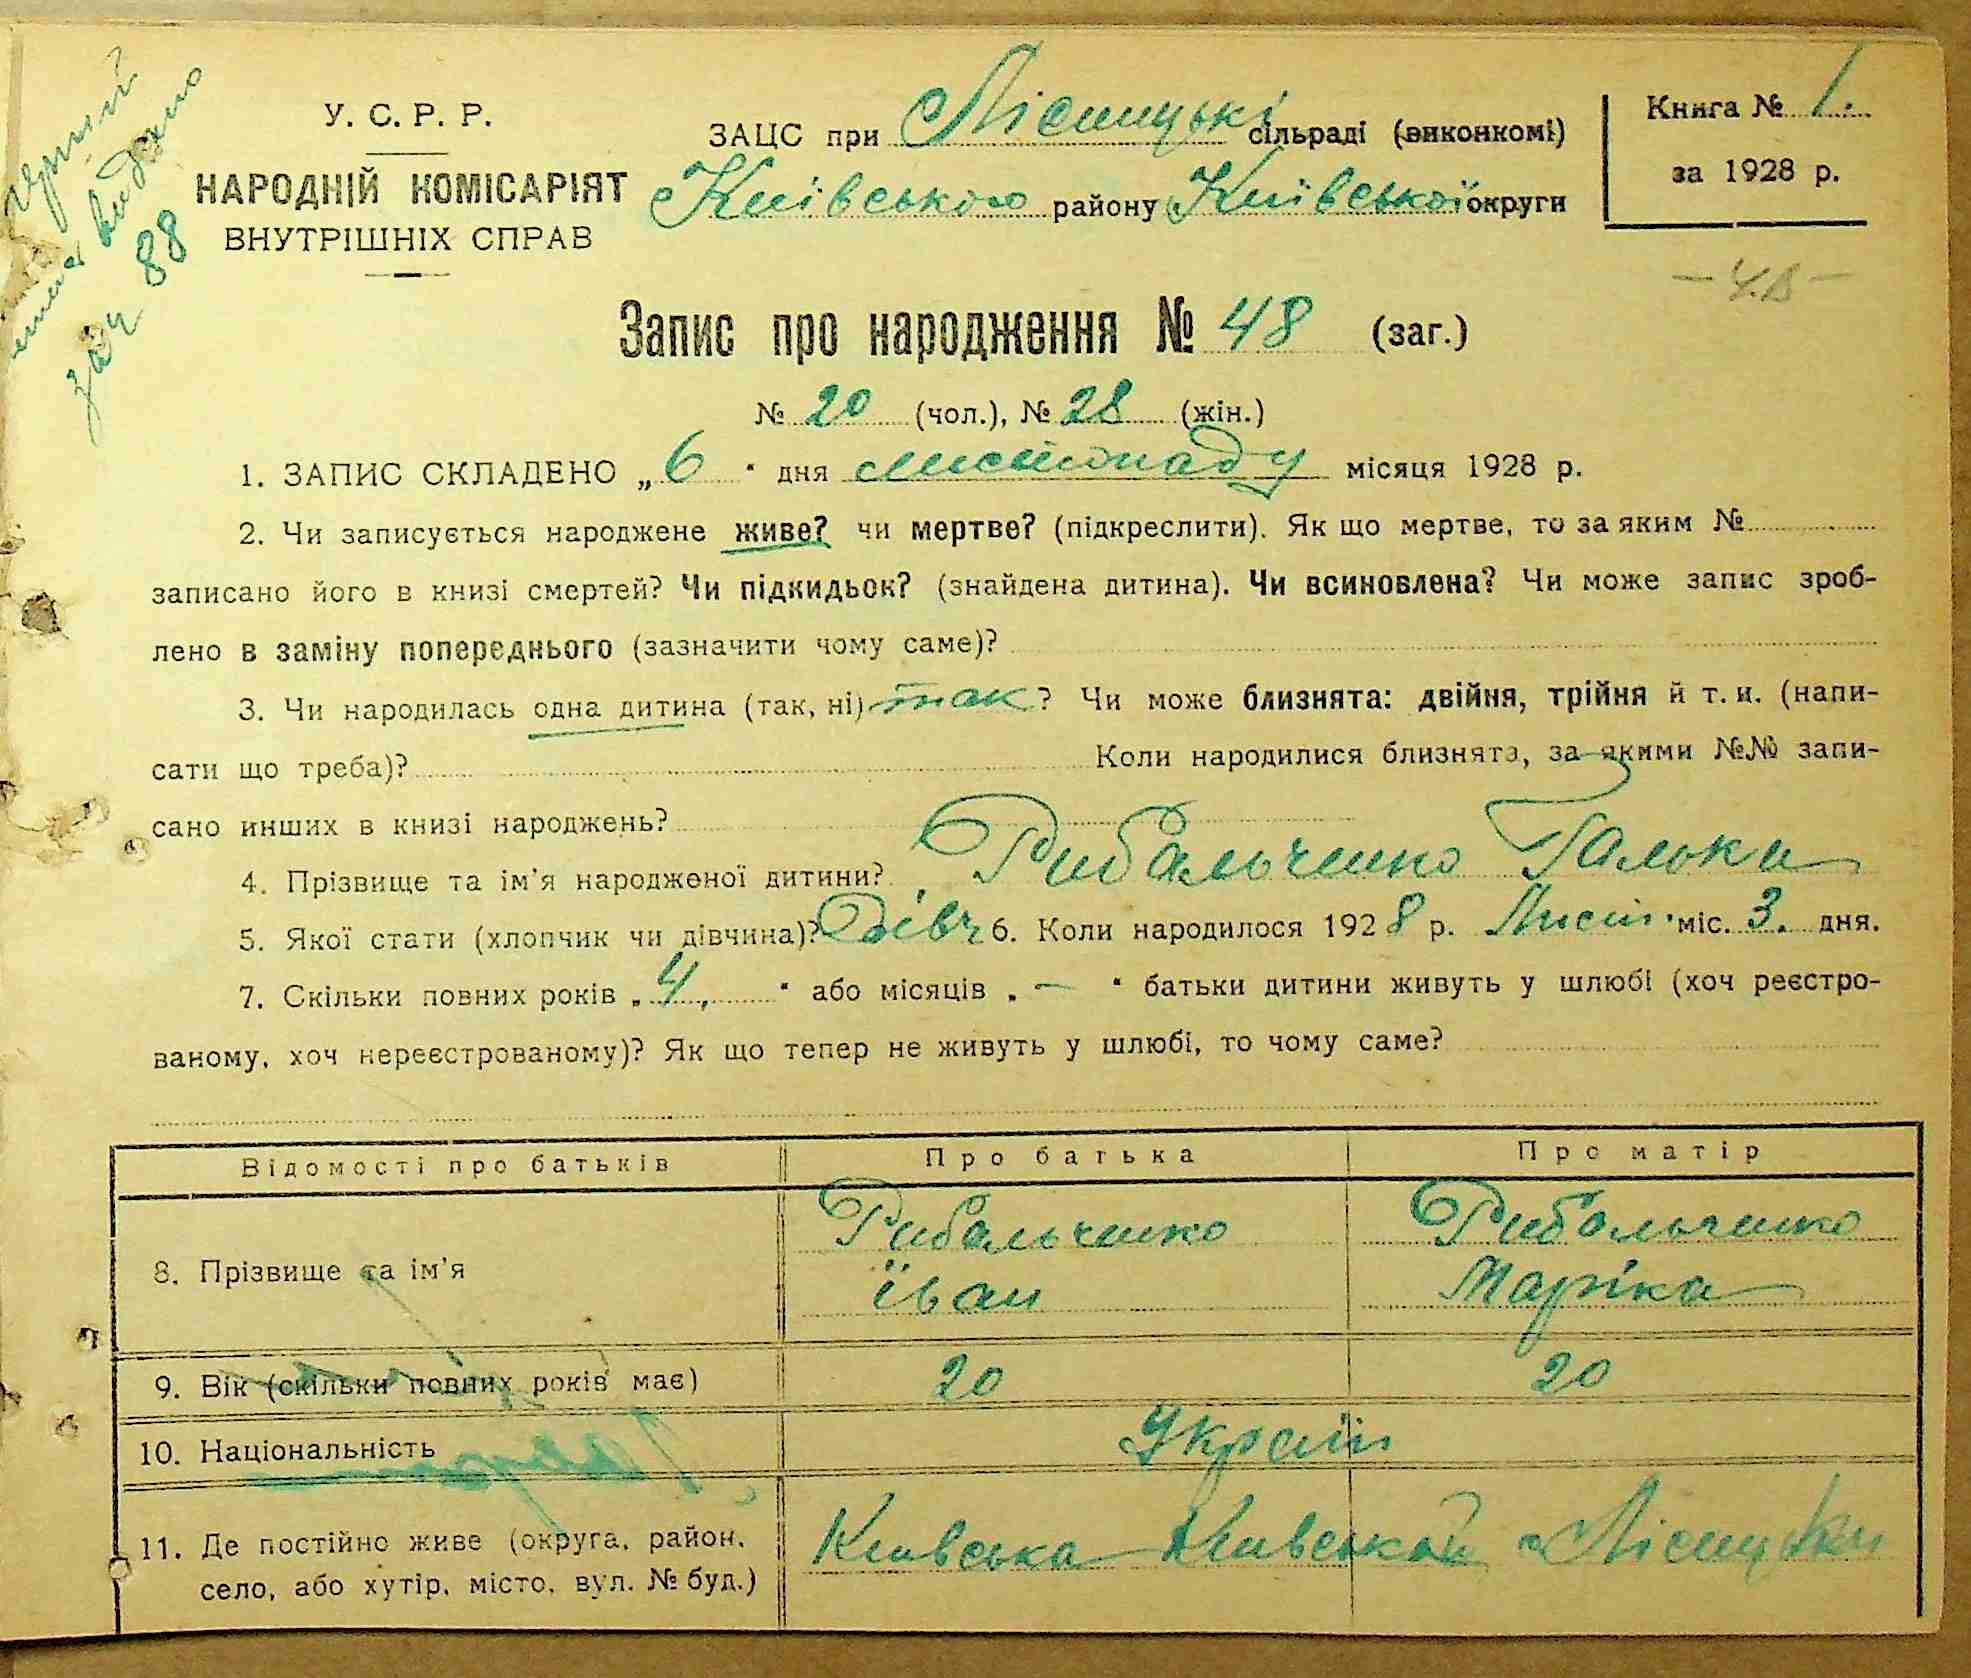 У. С. Р. Р.
НАРОДНІЙ КОМІСАРІЯТ
ВНУТРІШНІХ СПРАВ
видано
88
ЗАЦС при сільраді (виконкомі)
Київського району Київської округи
Книга № 1.
за 1928 р.
Запис про народження № 48 (заг.)
№ 20 (чол.), № 28 (жін.)
1. ЗАПИС СКЛАДЕНО „ 6 “ дня листопаду місяця 1928 р.
2. Чи записується народжене живе? чи мертве? (підкреслити). Як що мертве, то за яким №
записано його в книзі смертей? Чи підкидьок? (знайдена дитина). Чи всиновлена? Чи може запис зроб-
лено в заміну попереднього (зазначити чому саме)?
3. Чи народилась одна дитина (так, ні) так ? Чи може близнята: двійня, трійня й т. и. (напи-
сати що треба)? Коли народилися близнята, за якими №№ запи-
сано инших в книзі народжень?
4. Прізвище та ім'я народженої дитини? Рибальченко Галька
5. Якої стати (хлопчик чи дівчина)? Дівч 6. Коли народилося 1928 р. Лист. міс. 3. дня.
7. Скільки повних років „ 4, “ або місяців „ — “ батьки дитини живуть у шлюбі (хоч реєстро-
ваному, хоч нереєстрованому)? Як що тепер не живуть у шлюбі, то чому саме?
Відомості про батьків Про батька Про матір
8. Прізвище та ім'я Рибальченко Рибальченко
Їван Маріка
9. Вік (скільки повних років має) 20 20
10. Національність Україн
11. Де постійно живе (округа, район, Київська
село, або хутір, місто, вул. № буд.)